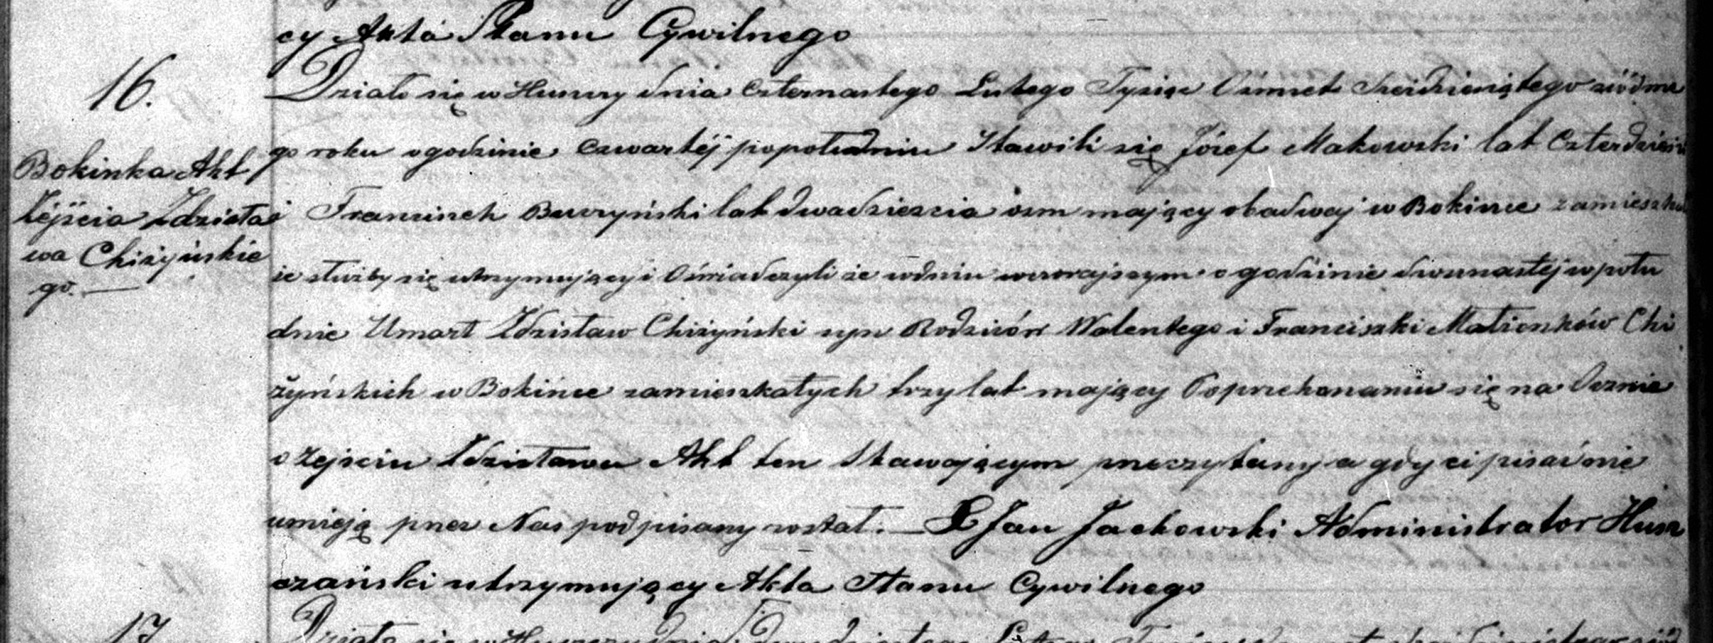 cy Akta Stanu Cywilnego
16.
Bokinka Akt
Zejścia Zdzisła
wa Chiżyńskie
go.
Działo się w Huszczy dnia czternastego Lutego Tysiąc Ośmset Sześdziesiątego siódme
go roku o godzinie czwartéj popołudniu Stawili się Józef Makowski lat Czterdzieści
i Franciszek Buczyński lat dwadzieścia osm mający obadwaj w Bokince zamieszkal
ze służby się utrzymujący i Oświadczyli że w dniu wczorajszym o godzinie dwunastéj w połu
dnie Umarł Zdzisław Chiżyński syn Rodziców Walentego i Franciszki Małżonków Chi
żyńskich w Bokince zamieszkałych trzy lat mający Po przekonaniu się na Ocznie
o Zejściu Zdzisława Akt ten Stawającym przeczytany a gdy ci pisać nie
umieją przez Nas podpisany został. — X Jan Jackowski Administrator Husz
czański utrzymujący Akta Stanu Cywilnego
17
Działo się w Huszczy dnia Dwudziestego Lutego